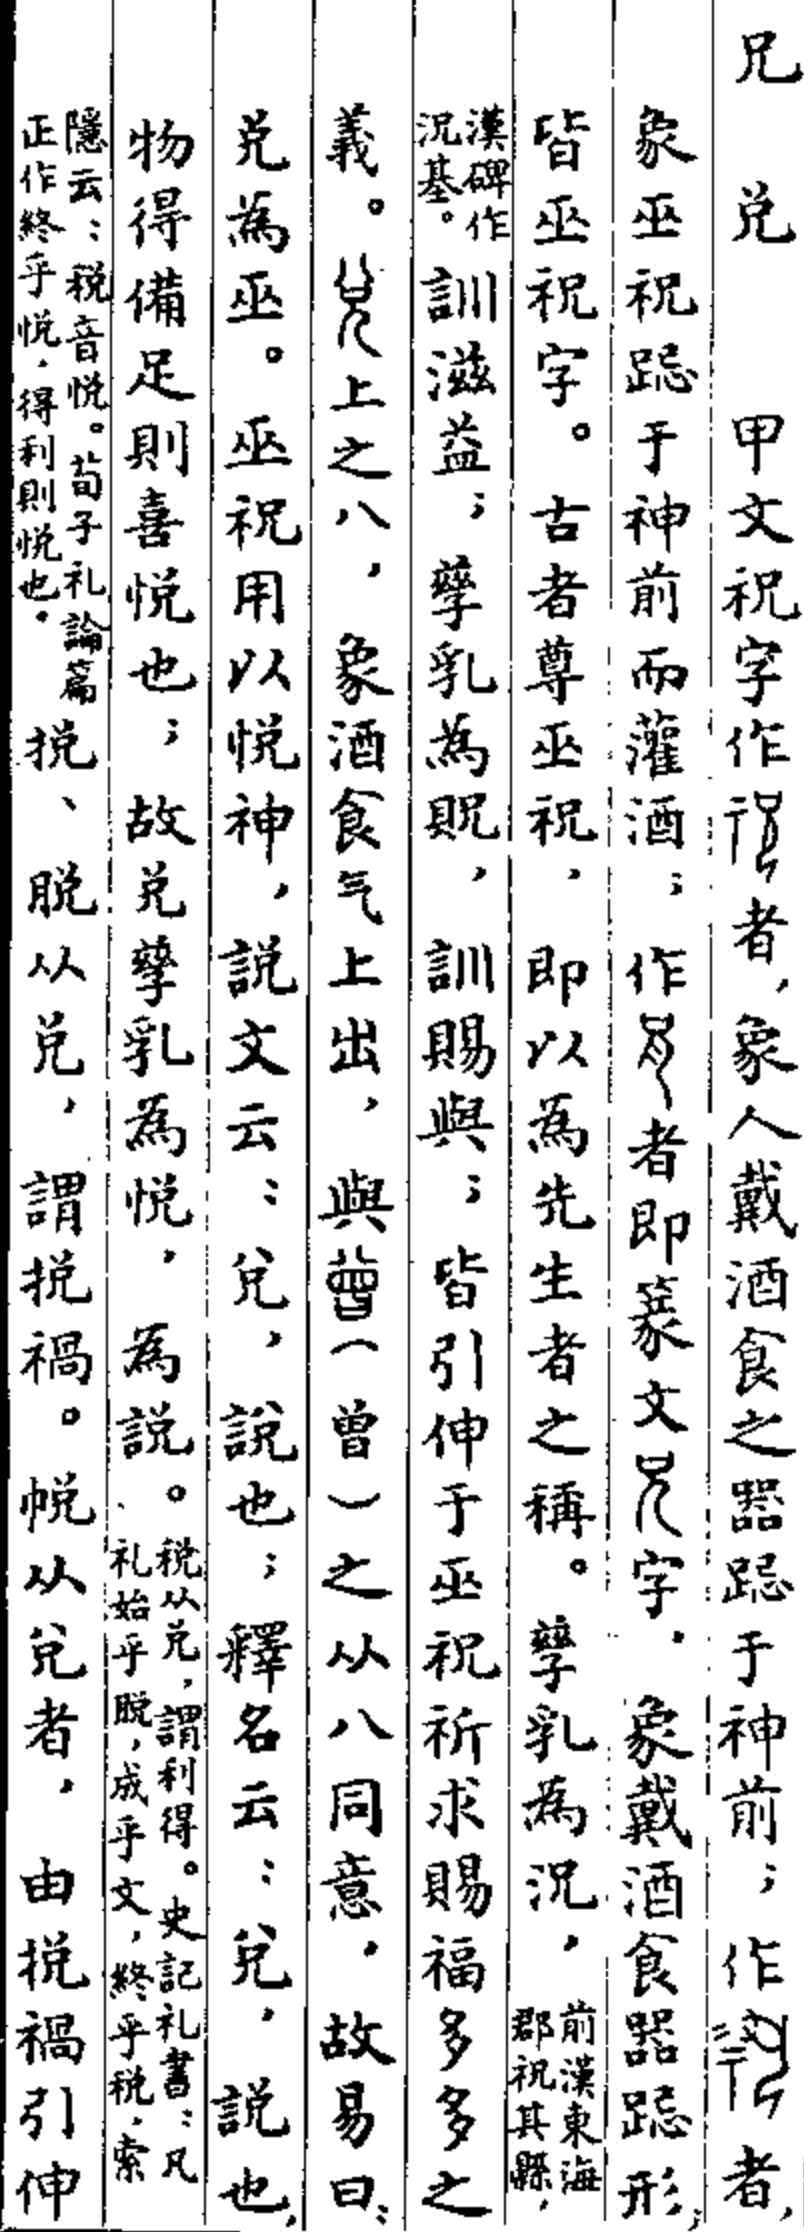 兄 兑 甲文祝字作者,象人戴酒食之器跽于神前;作者,
象巫祝跽于神前而灌酒;作者即篆文字.象戴酒食器跽形;
皆巫祝字。古者尊巫祝,即以為先生者之稱。孳乳為況,前漢東海郡祝其縣,
漢碑作況基。訓滋益;孳乳為貺,訓賜與;皆引伸于巫祝祈求賜福多多之
義。上之八,象酒食气上出,與(曾)之从八同意,故易曰:
兑為巫。巫祝用以悦神,説文云:兑,説也;釋名云:兑,説也,
物得備足則喜悦也;故兑孳乳為悦,為説。税从兑,謂利得。史記礼書:凡礼始乎脱,成乎文,終乎税.索
隱云:税音悦。荀子礼論篇正作終乎悦.得利則悦也.捝、脱从兑,謂捝禍。帨从兑者,由捝禍引伸